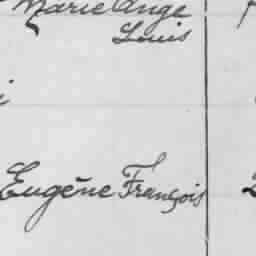 Marie Ange
Louis
Eugène François